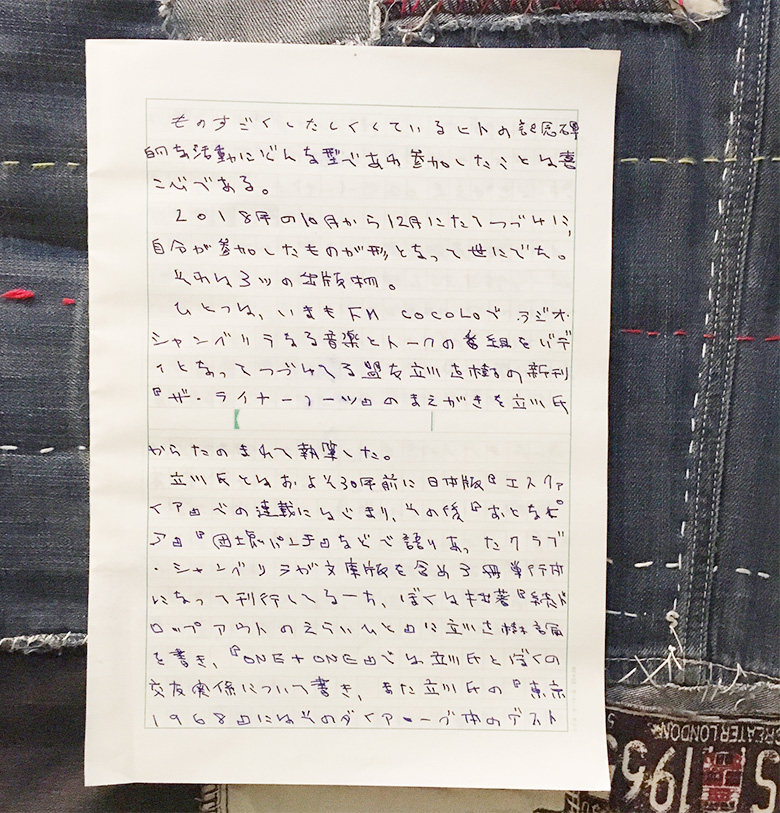 ものすごくしたしくしているヒトの記念碑
的な活動にどんな型であれ参加したことは喜
こびである。
2018年の10月から12月にたてつづけに、
自分が参加したものが形となって世にでた。
それは3ツの出版物。
ひとつは、いまもFM COCOLOでラジオ・
シャングリラなる音楽とトークの番組をバデ
ィとなってつづけてる盟友立川直樹の新刊
『ザ・ライナーノーツ』のまえがきを立川氏
からたのまれて執筆した。
立川氏とはおよそ30年前に日本版『エスクァ
イア』での連載にはじまり、その後『おとなピ
ア』『団塊パンチ』などで語りあったクラブ
・シャングリラが文庫版を含め3冊単行本
になって刊行してる一方、ぼくは拙著『続ド
ロップアウトのえらいひと』に立川直樹論
を書き、『ONE+ONE』では立川氏とぼくの
交友関係について書き、また立川氏の『東京
1968』にはそのダイアローグ本のゲスト
GREATER LONDON
S 195